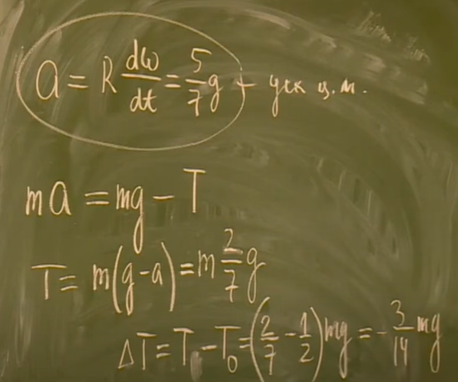 a = R dω/dt = 5/7 g – уск ц.м.
ma = mg – T
T = m(g-a) = m 2/7 g
ΔT = T – T₀ = (2/7 - 1/2) mg = - 3/14 mg